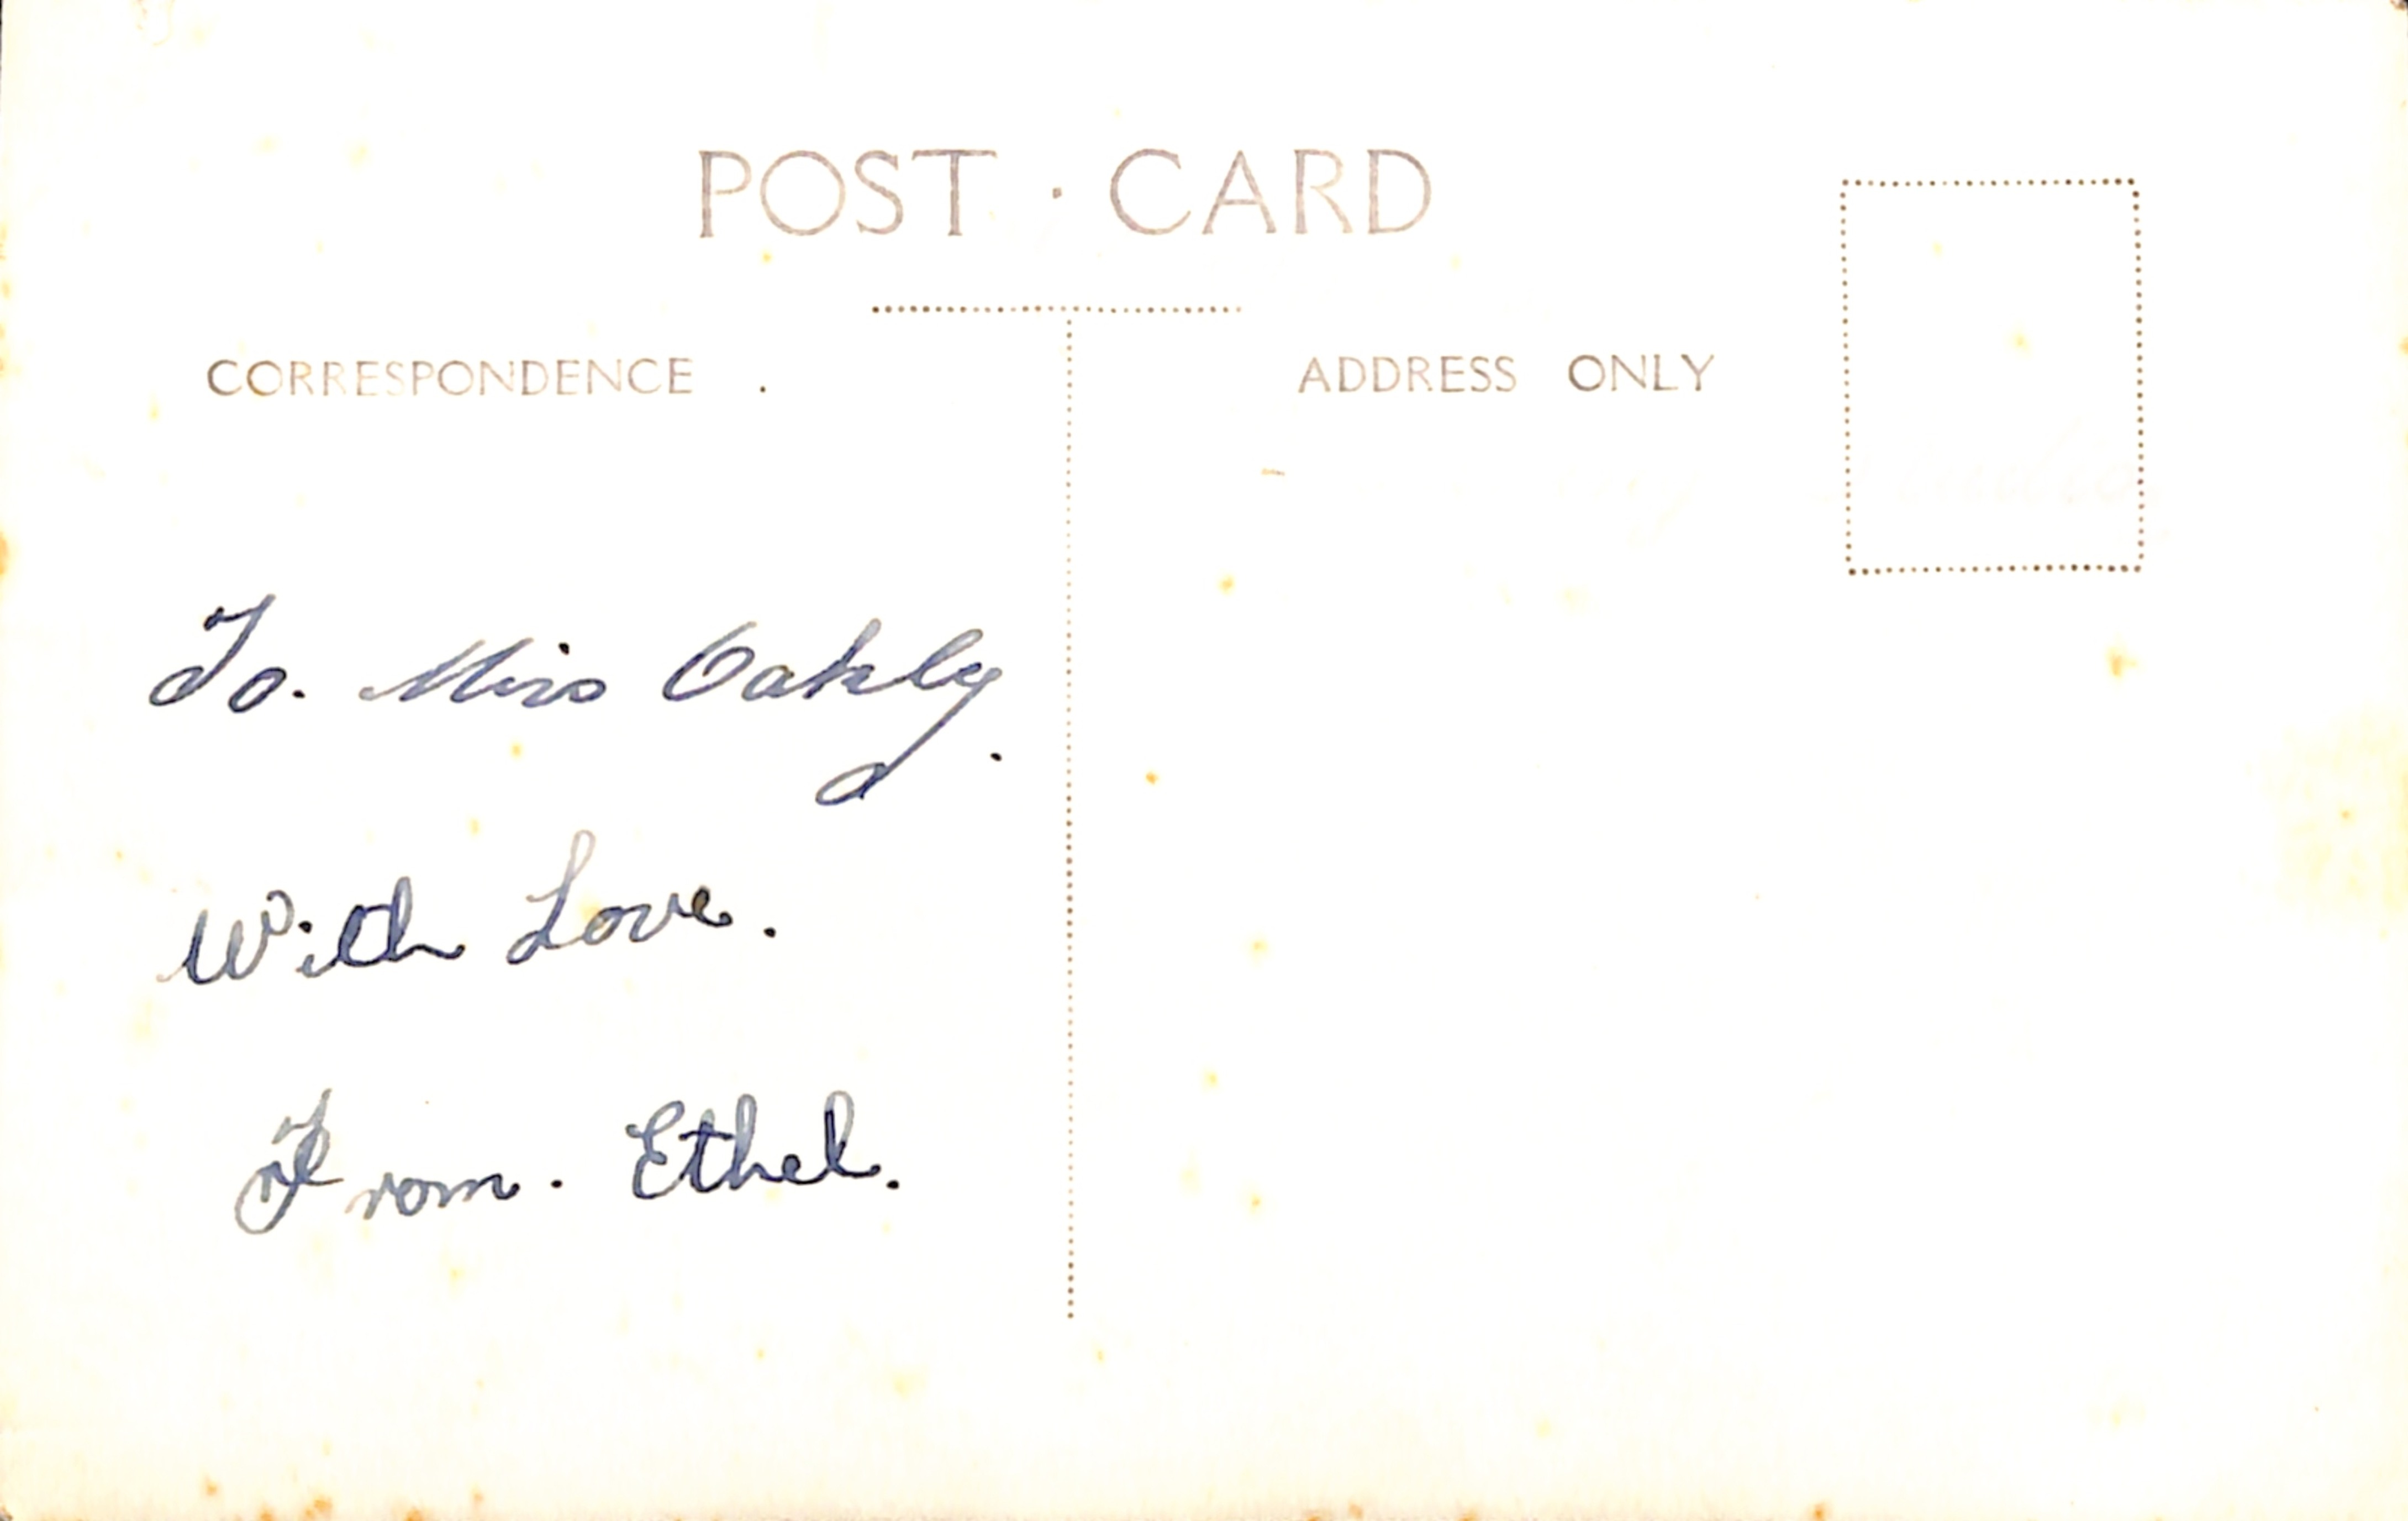 POST · CARD
CORRESPONDENCE .
ADDRESS ONLY
To. Miss Oakly.
With Love.
From. Ethel.